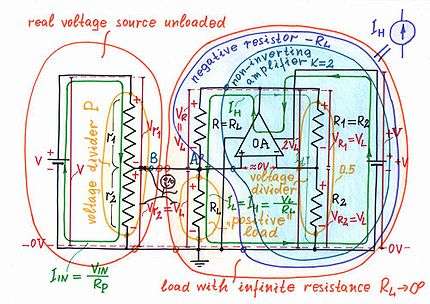 real voltage source unloaded
I_H
negative resistor -R_L
non-inverting
amplifier K=2
voltage divider P
V
r1
r2
V_r1
V_r2 = V_L
B
A
V_R = V_L
R=R_L
I_H
OA
2V_L
R1=R2
V_R1=V_L
+V
V
≈0V
voltage
divider
0.5
R_L
I_L = I_H = V_L/R_L
positive
load
R2
V_R2=V_L
-0V
0V-
I_IN = V_IN/R_P
load with infinite resistance R_L→∞